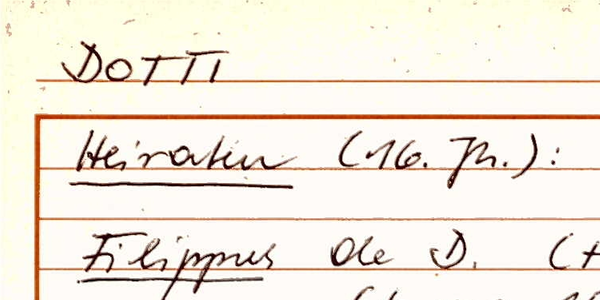 DOTTI
Heiraten (16. Jh.):
Filippus de D. (+